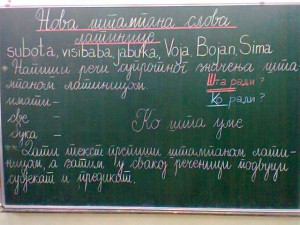 Нова штампана слова
латинице
subota, visibaba, jabuka, Voja, Bojan, Sima
* Напиши речи супротног значења шта-
мпаном латиницом. Шта ради?
имати – Ко ради?
све –
бука – Ко шта уме
* Дати текст препиши штампаном лати-
ницом, а затим у свакој реченици подвуци
субјекат и предикат.